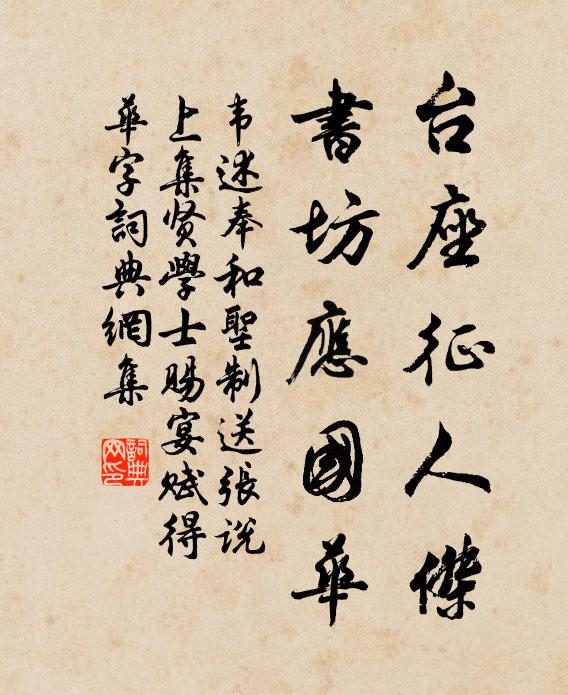 台座征人傑
書坊應國華
韦述奉和聖制送張说
上集贤學士賜宴赋得
華字詞典網集
詞典
网印